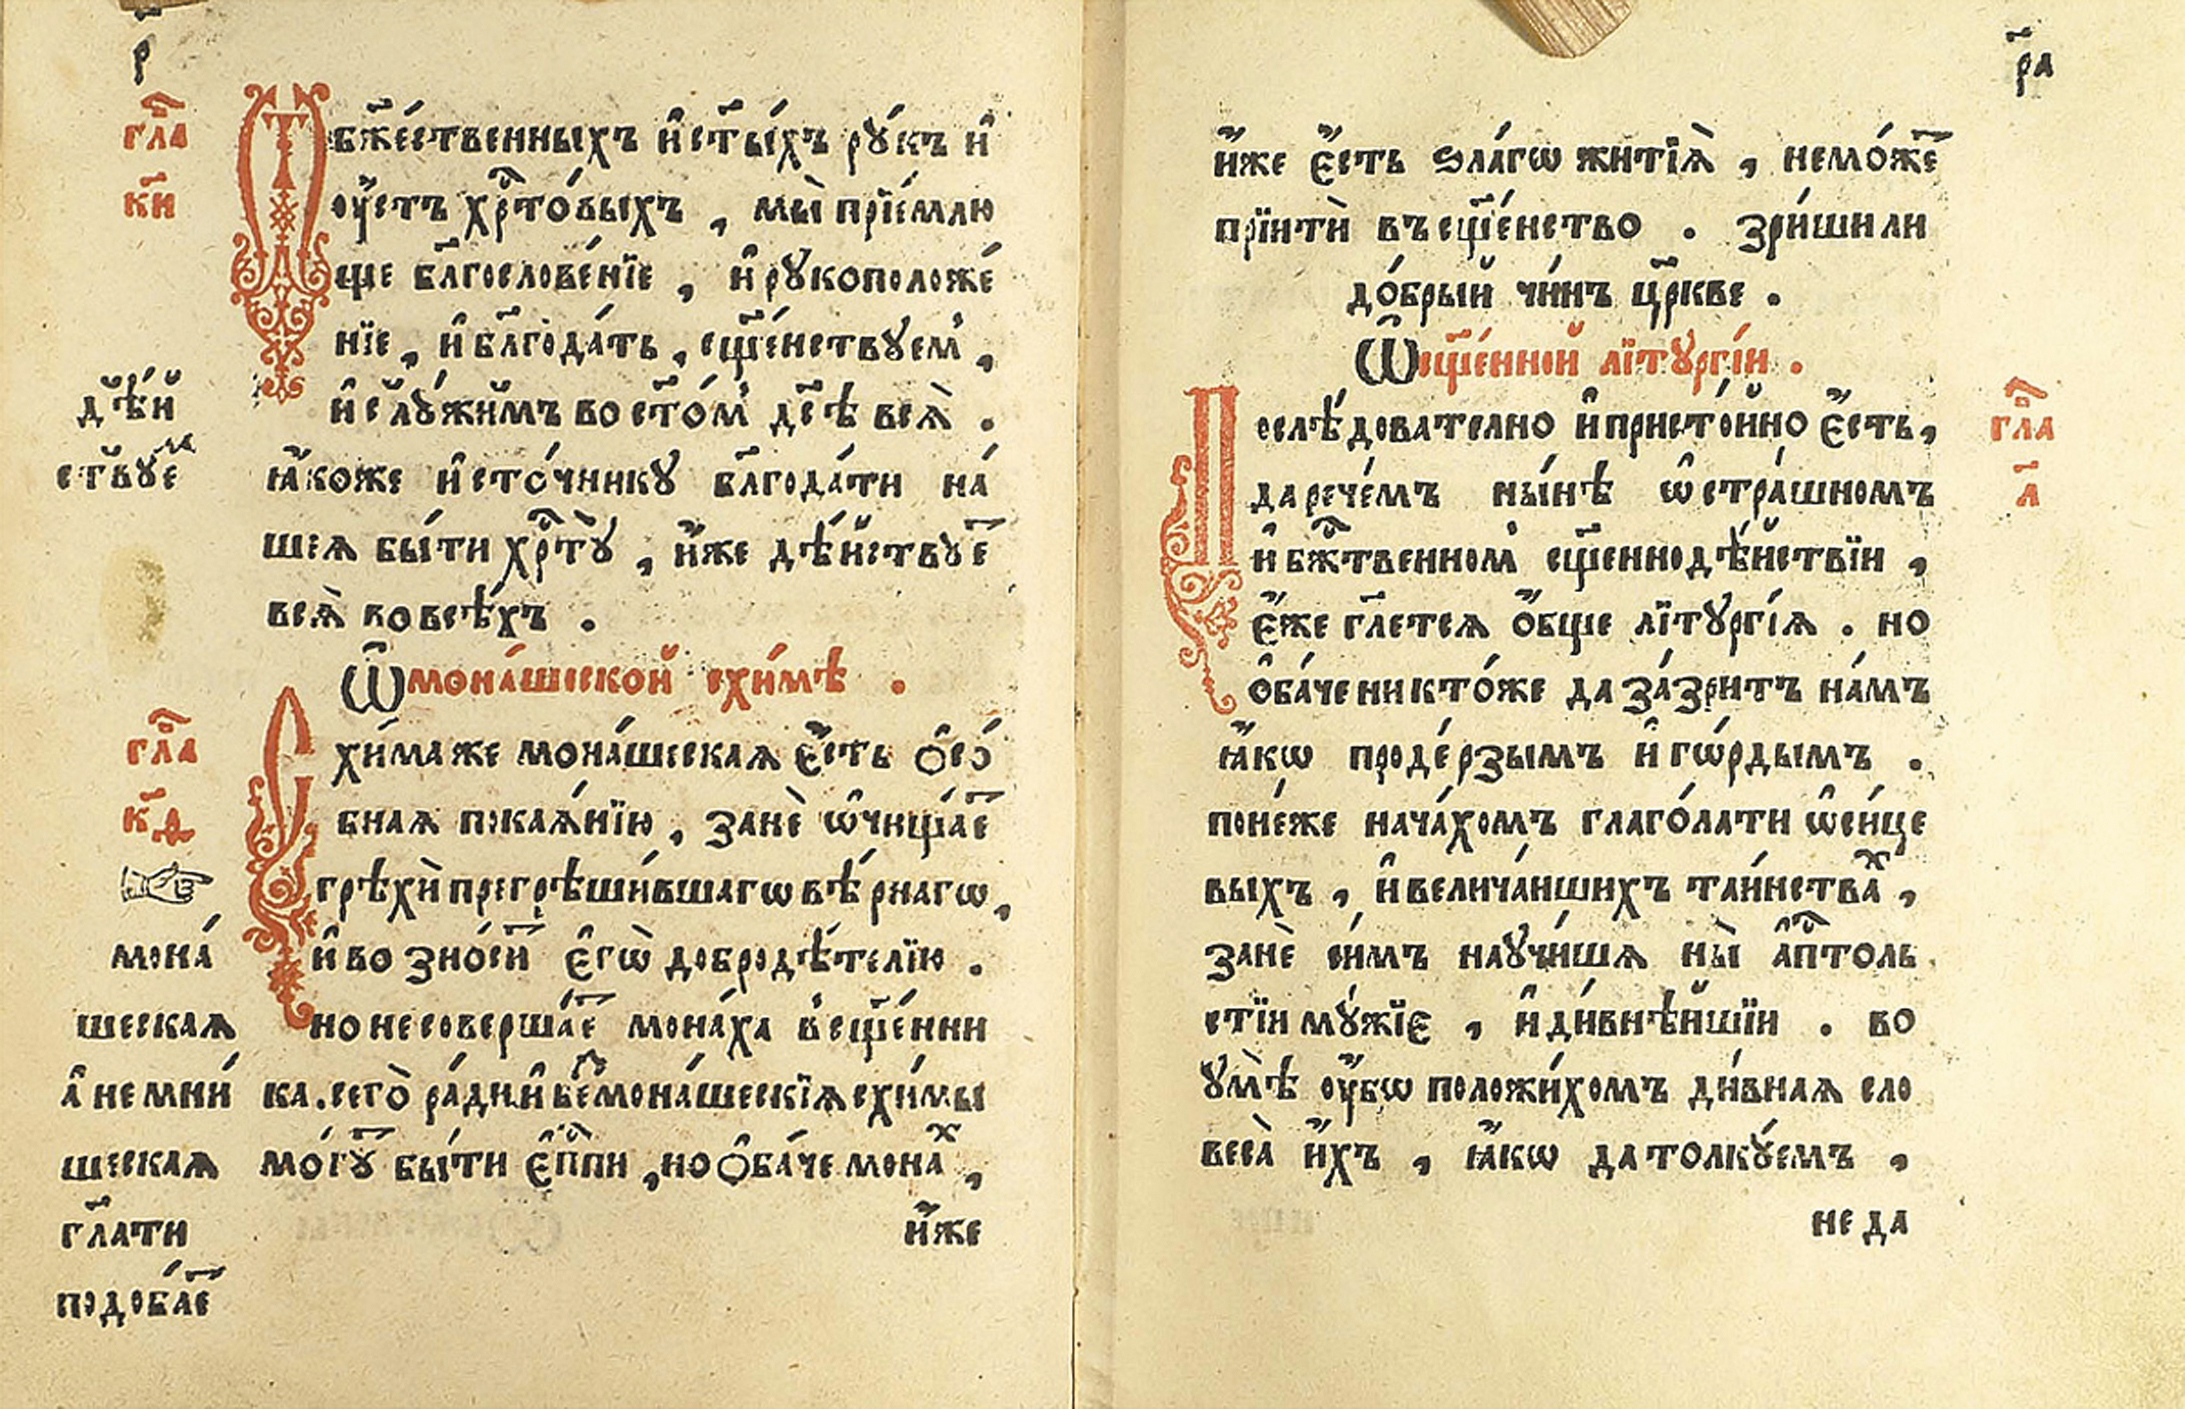 р҃
гла̑
к҃и
Ѿ бж҃е́ственныхъ и҆ ст҃ы́хъ рꙋ́къ и҆
оу҆́стъ хрⷭ҇то́выхъ , мы̀ прїе́млю
ще бл҃гослове́нїе , и҆ рꙋкоположе́
нїе , и҆ бл҃года́ть , сщ҃е́нствꙋем̾ ,
и҆ слꙋ́жи́мъ во ст҃о́м̾ дс҃ѣ вся̀ .
ꙗ҆́коже и҆сто́чникꙋ бл҃года́ти на́
шея бы́ти хрⷭ҇тꙋ̀ , и҆́же дѣ́йствꙋеⷮ
вся̀ во всѣ́хъ .
дѣ́й
ствꙋеⷨ
Ѿ мона́шеской схи́мѣ .
гла̑
к҃ѳ
Схи́ма же мона́шеская є҆́сть ѻ҆со́
бная покая́нїю , занѐ ѡ҆чища́еⷮ
грѣхѝ прегрѣши́вшагѡ вѣ́рнагѡ ,
и҆ возно́сиⷮ є҆гѡ̀ добродѣ́телїю .
но не соверша́еⷮ мона́ха в̾ сщ҃е́нни
ка . сего̀ ра́ди и҆ беⷥ мона́шескїя схи́мы
мо́гꙋⷮ бы́ти є҆пⷭ҇пи , но ѻ҆ба́че мона́ⷯ ,
и҆́же
мона́
шеская
а҆ не мни́
шеская
гл҃ати
подоба́еⷮ
р҃а
и҆́же є҆́сть ѕла́гѡ житїя̀ , не мо́жеⷮ
прїитѝ въ сщ҃е́нство . зри́ши ли
до́брый чи́нъ цр҃кве .
Ѿ сщ҃е́нной лїтꙋргі́и .
гла̑
л҃
Послѣ́дователно и҆ присто́йно є҆́сть ,
да рече́мъ ны́нѣ ѡ҆ стра́шномъ
и҆ бжⷭ҇твенном̾ сщ҃еннодѣ́йствїи ,
є҆́же гл҃ется ѻ҆́бще лїтꙋргі́я . но
ѻ҆ба́че никто́же да за́зритъ на́мъ
ꙗ҆́кѡ проде́рзымъ и҆ гѡ́рдымъ .
поне́же нача́хомъ глаго́лати ѡ҆ си́це
выхъ , и҆ велича́йшихъ таи́нстваⷯ ,
занѐ си́мъ наꙋчи́шя ны̀ а҆пⷭ҇толь
стїи мꙋ́жїе , и҆ ди́внѣ́йшїи . во
ꙋмѣ̀ оу҆́бѡ положи́хомъ ди́вная сло
веса̀ и҆́хъ , ꙗ҆́кѡ да толкꙋ́емъ ,
не да